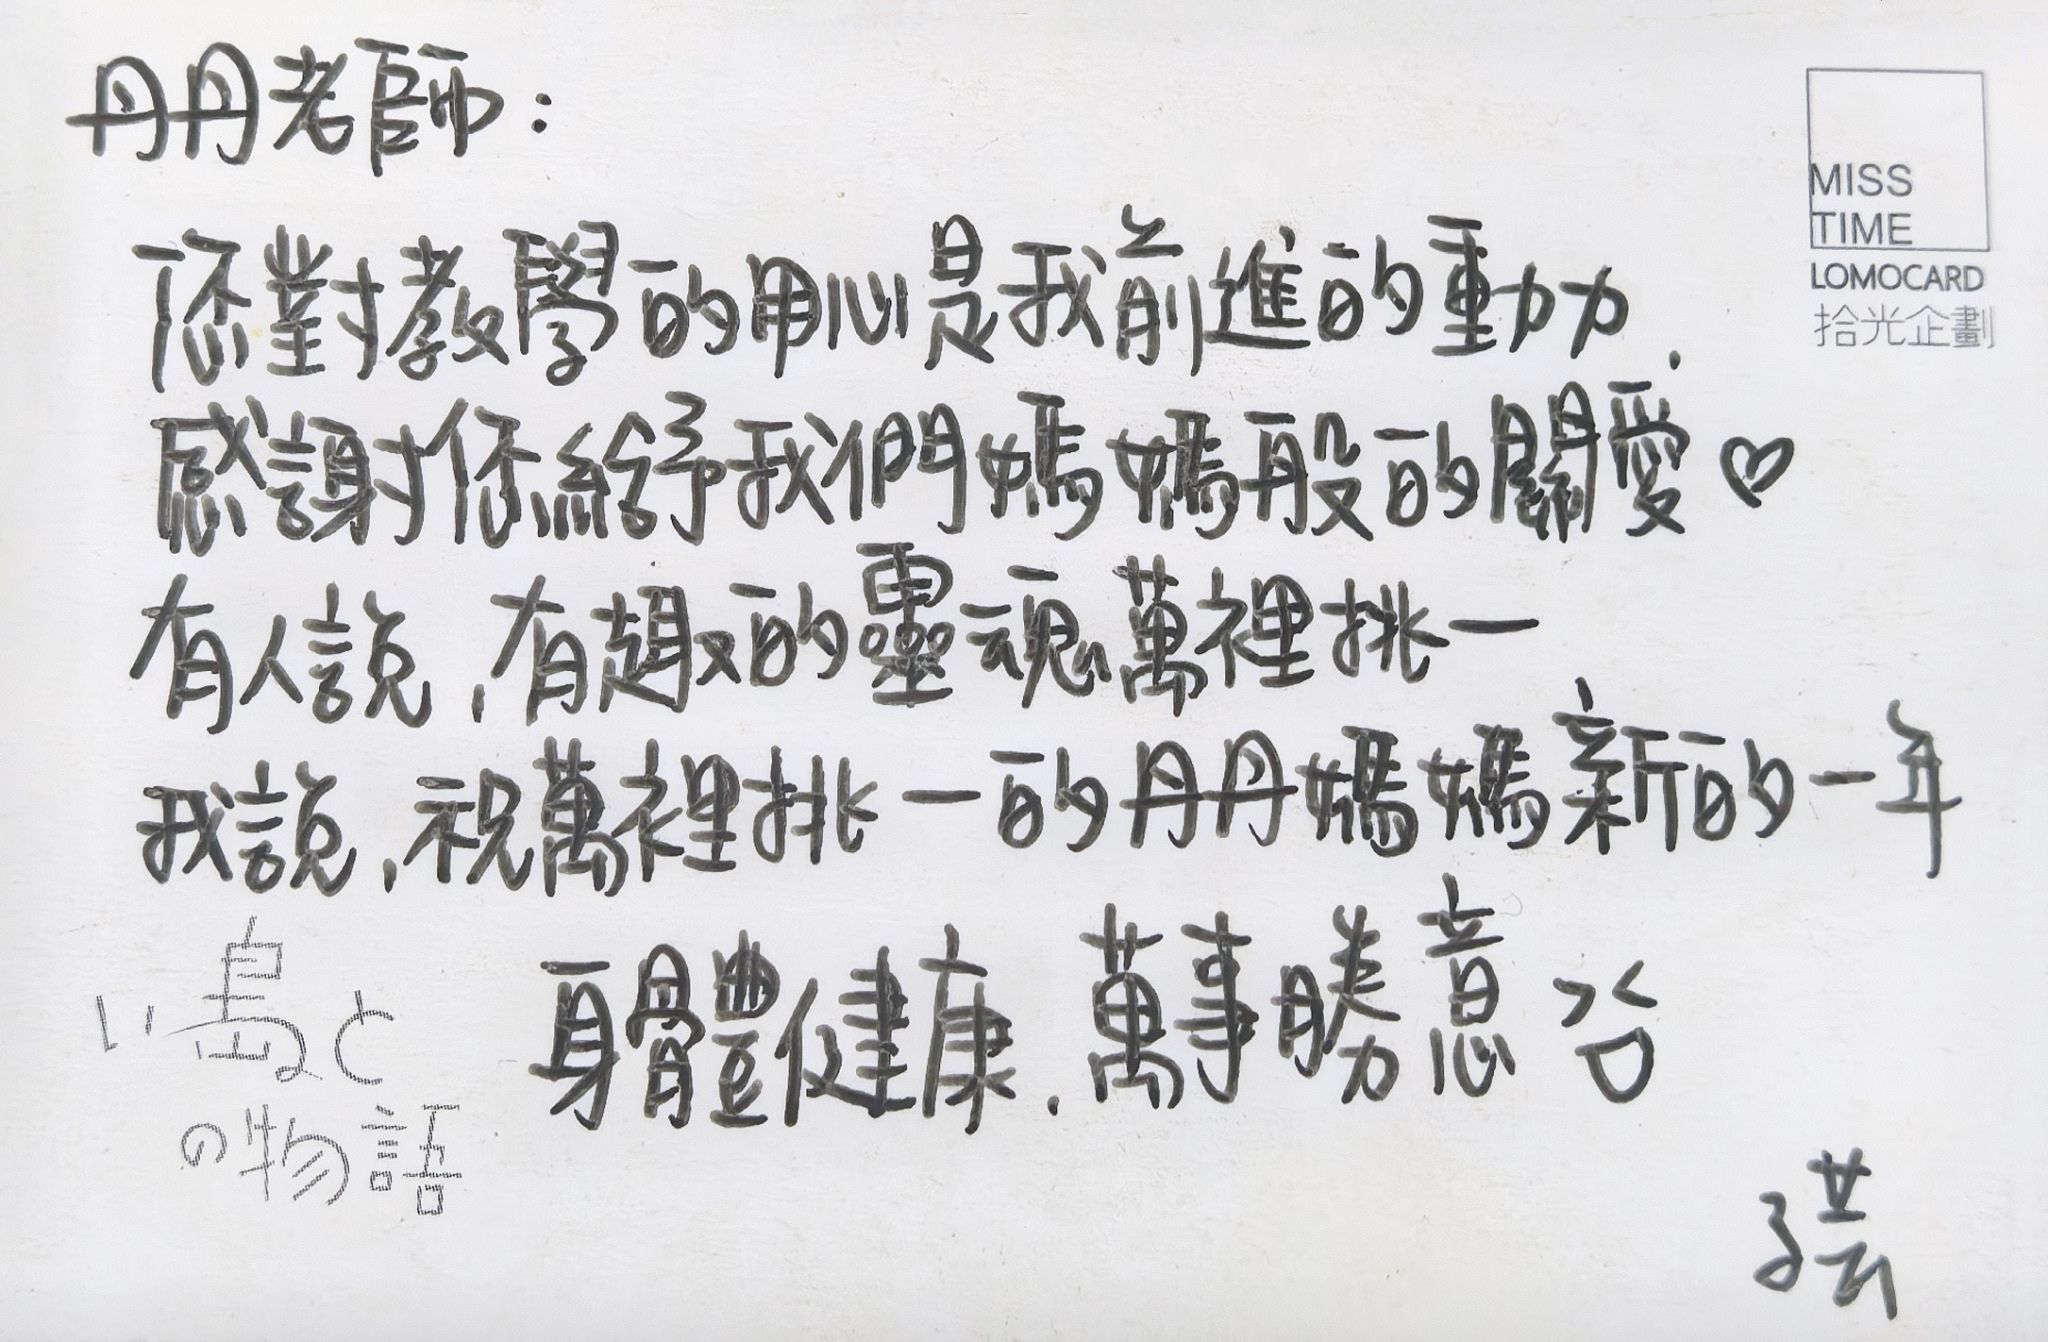 丹丹老師：
MISS
TIME
LOMOCARD
拾光企劃
您對教學的用心是我前進的動力.
感謝你給予我們媽媽般的關愛♡
有人說,有趣的靈魂萬裡挑一
我說,祝萬裡挑一的丹丹媽媽新的一年
身體健康.萬事勝意
い島よと
の物語
子芸